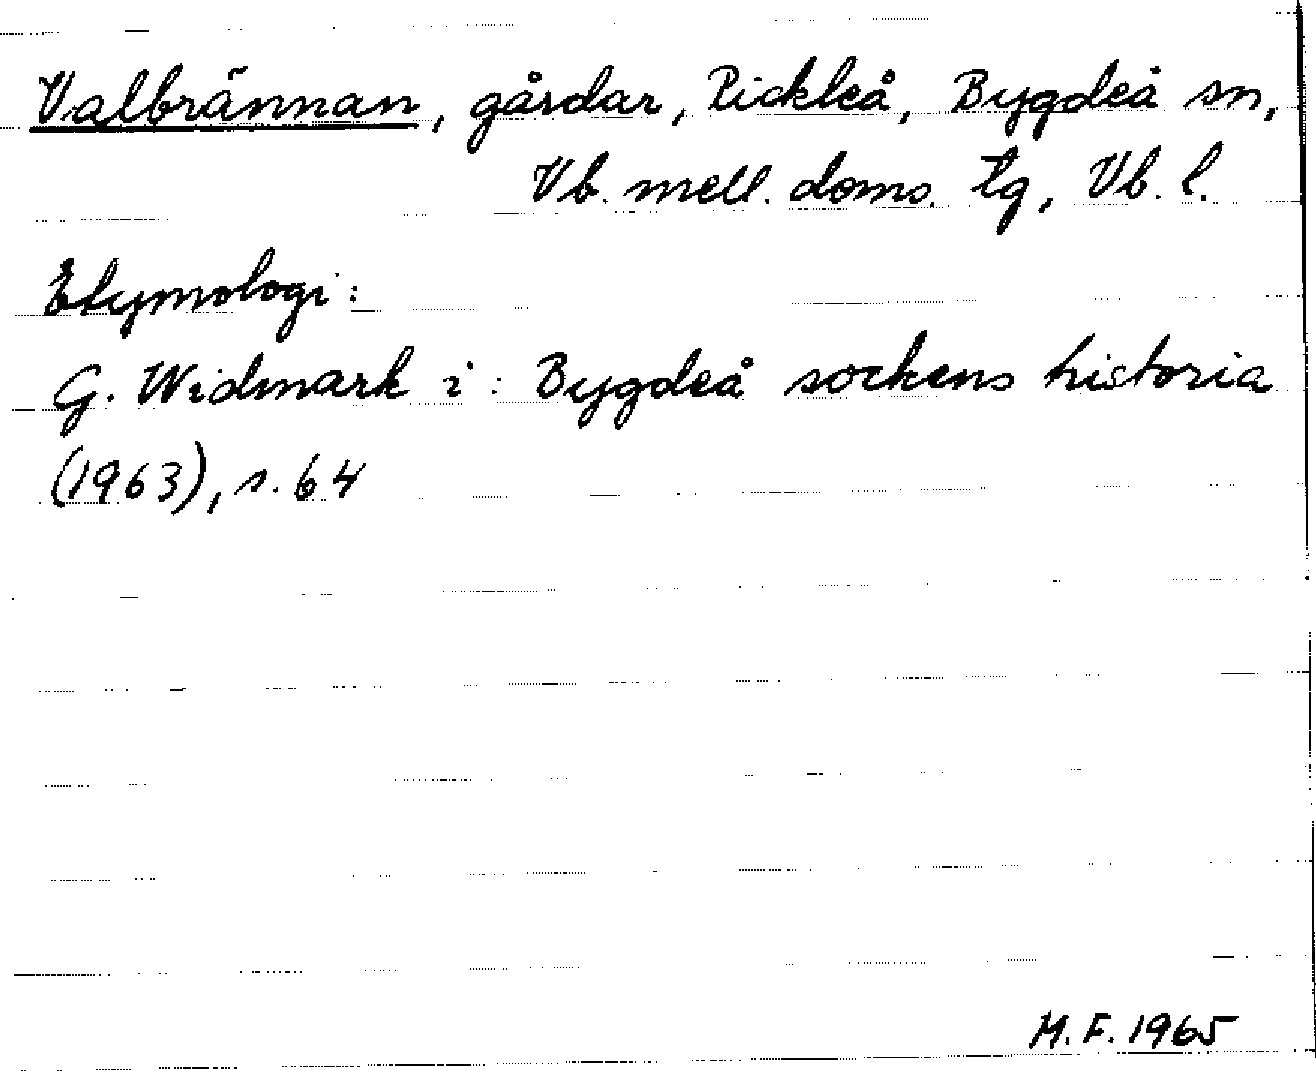 Valbrännan, gårdar, Pickleå, Bygdeå sn,
Vb. mell. doms. tg, Vb. l.
Etymologi:
G. Widmark i: Bygdeå sockens historia
(1963), s. 64
M.F. 1965